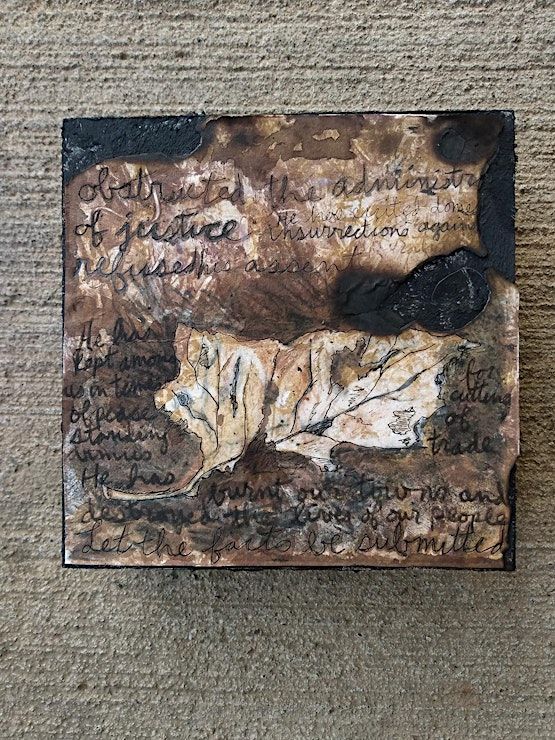 obstructed the administr
of justice. He has excited domes
insurrections agains
refused his assent
He has
kept among
us in times
of peace
standing
armies
for
cutting
of
trade
He has
burnt our towns and
destroyed the lives of our people
Let the facts be submitted